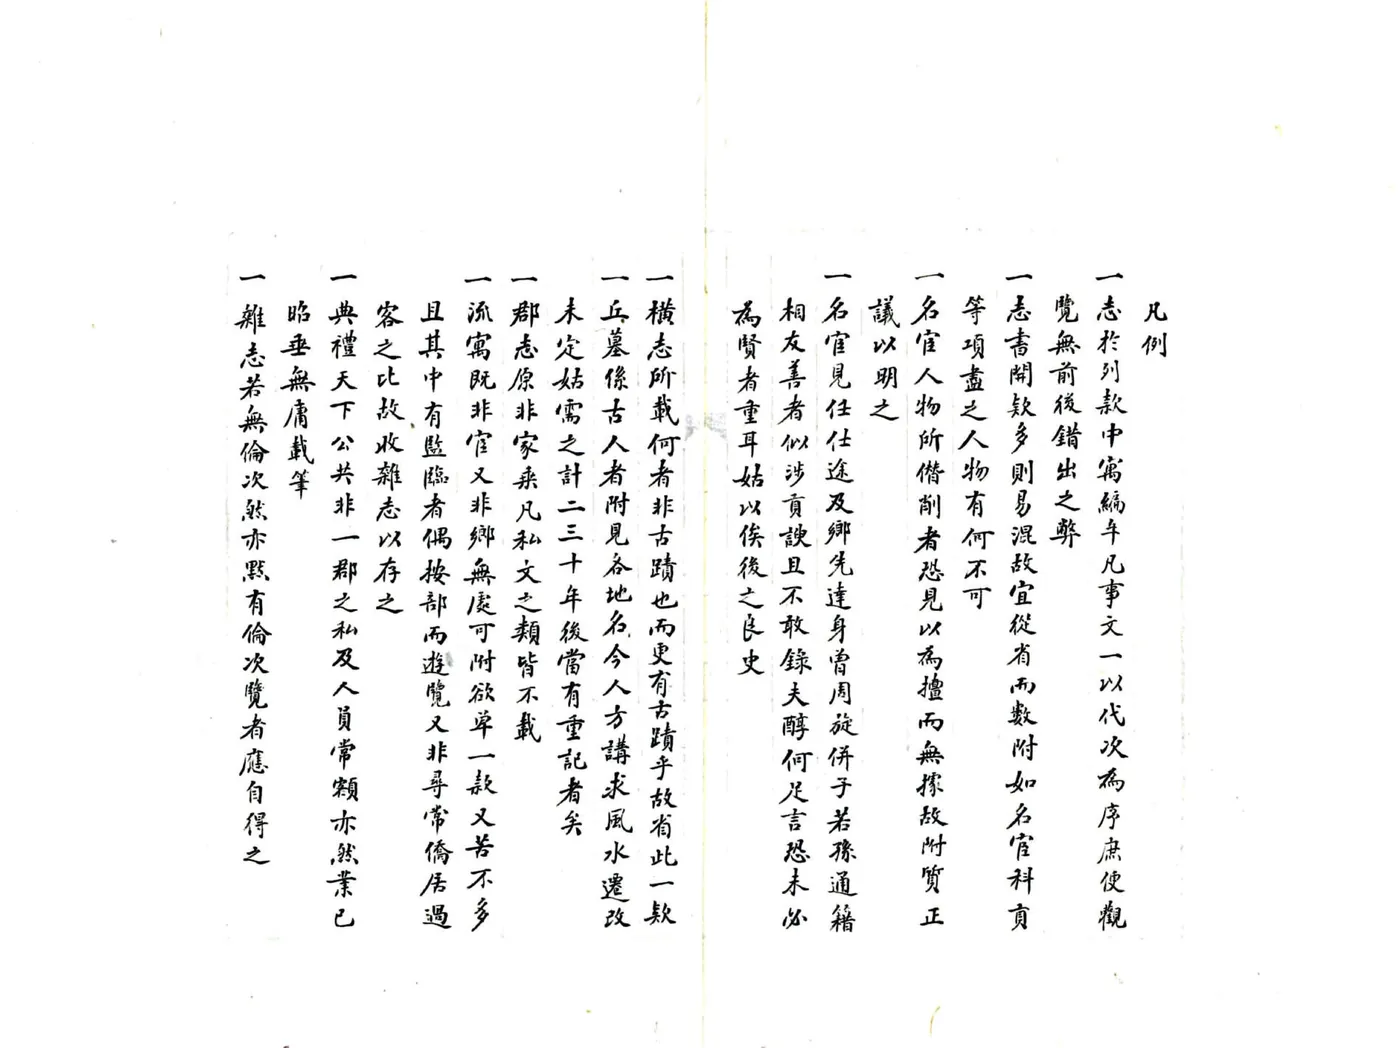 凡例
一志於列款中寓編年凡事文一以代次為序庶使觀
覽無前後錯出之弊
一志書開款多則易混故宜從省而數附如名宦科貢
等項盡之人物有何不可
一名宦人物所僭削者恐見以為擅而無據故附質正
議以明之
一名宦見任仕途及鄉先達身曾周旋併子若孫通籍
相友善者似涉貢諛且不敢錄夫醇何足言恐未必
為賢者重耳姑以俟後之良史
一橫志所載何者非古蹟也而更有古蹟乎故省此一款
一丘墓係古人者附見各地名今人方講求風水遷改
未定姑需之計二三十年後當有重記者矣
一郡志原非家乘凡私文之類皆不載
一流寓既非宦又非鄉無處可附欲单一款又苦不多
且其中有監臨者偶按部而遊覽又非尋常僑居過
客之比故收雜志以存之
一典禮天下公共非一郡之私及人員常額亦然業已
昭垂無庸載筆
一雜志若無倫次然亦默有倫次覽者應自得之